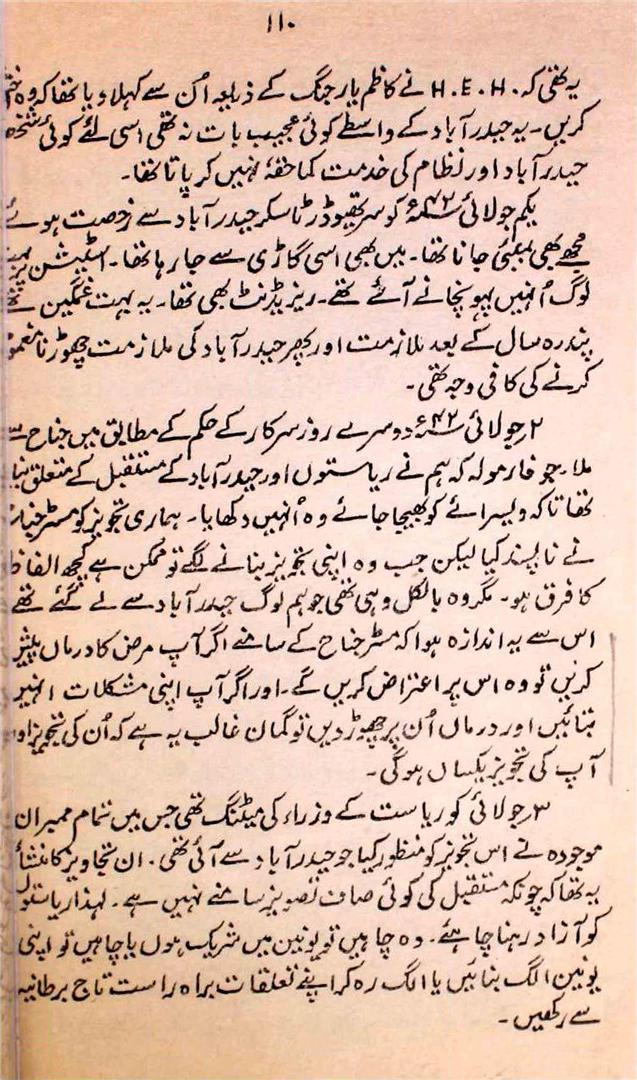 ۱۱۰
یہ تھی کہ H.E.H. نے کاظم یار جنگ کے ذریعہ اُن سے کہلا دیا تھا کہ وہ ختم
کریں۔ یہ حیدرآباد کے واسطے کوئی عجیب بات نہ تھی اسی لئے کوئی شخص
حیدرآباد اور نظام کی خدمت کما حقہٗ نہیں کر پاتا تھا۔
یکم جولائی ۴۲ء کو سر تھیوڈر ٹاسکر حیدرآباد سے رخصت ہوئے
مجھے بھی بمبئی جانا تھا۔ میں بھی اسی گاڑی سے جا رہا تھا۔ اسٹیشن پر بہت
لوگ اُنہیں پہونچانے آئے تھے۔ ریزیڈنٹ بھی تھا۔ یہ بہت غمگین تھے
پندرہ سال کے بعد ملازمت اور پھر حیدرآباد کی ملازمت چھوڑنا مغموم
کرنے کی کافی وجہ تھی۔
۲؍جولائی ۴۲ء دوسرے روز سرکار کے حکم کے مطابق میں جناح سے
ملا۔ جو فارمولہ کہ ہم نے ریاستوں اور حیدرآباد کے مستقبل کے متعلق بنایا
تھا تاکہ ویسرائے کو بھیجا جائے وہ اُنہیں دکھایا۔ ہماری تجویز کو مسٹر جناح
نے ناپسند کیا لیکن جب وہ اپنی تجویز بنانے لگے تو ممکن ہے کچھ الفاظ
کا فرق ہو۔ مگر وہ بالکل وہی تھی جو ہم لوگ حیدرآباد سے لے گئے تھے
اس سے یہ اندازہ ہوا کہ مسٹر جناح کے سامنے اگر آپ مرض کا درماں پیش
کریں تو وہ اس پر اعتراض کریں گے۔ اور اگر آپ اپنی مشکلات انہیں
بتائیں اور درماں اُن پر چھوڑ دیں تو گمان غالب یہ ہے کہ اُن کی تجویز اور
آپ کی تجویز یکساں ہوگی۔
۳؍جولائی کو ریاست کے وزراء کی میٹنگ تھی جس میں تمام ممبران
موجودہ نے اس تجویز کو منظور کیا جو حیدرآباد سے آئی تھی۔ ان تجاویز کا منشأ
یہ تھا کہ چونکہ مستقبل کی کوئی صاف تصویر سامنے نہیں ہے۔ لہذا ریاستوں
کو آزاد رہنا چاہئے۔ وہ چاہیں تو یونین میں شریک ہوں یا چاہیں تو اپنی
یونین الگ بنائیں یا الگ رہ کر اپنے تعلقات براہ راست تاج برطانیہ
سے رکھیں۔